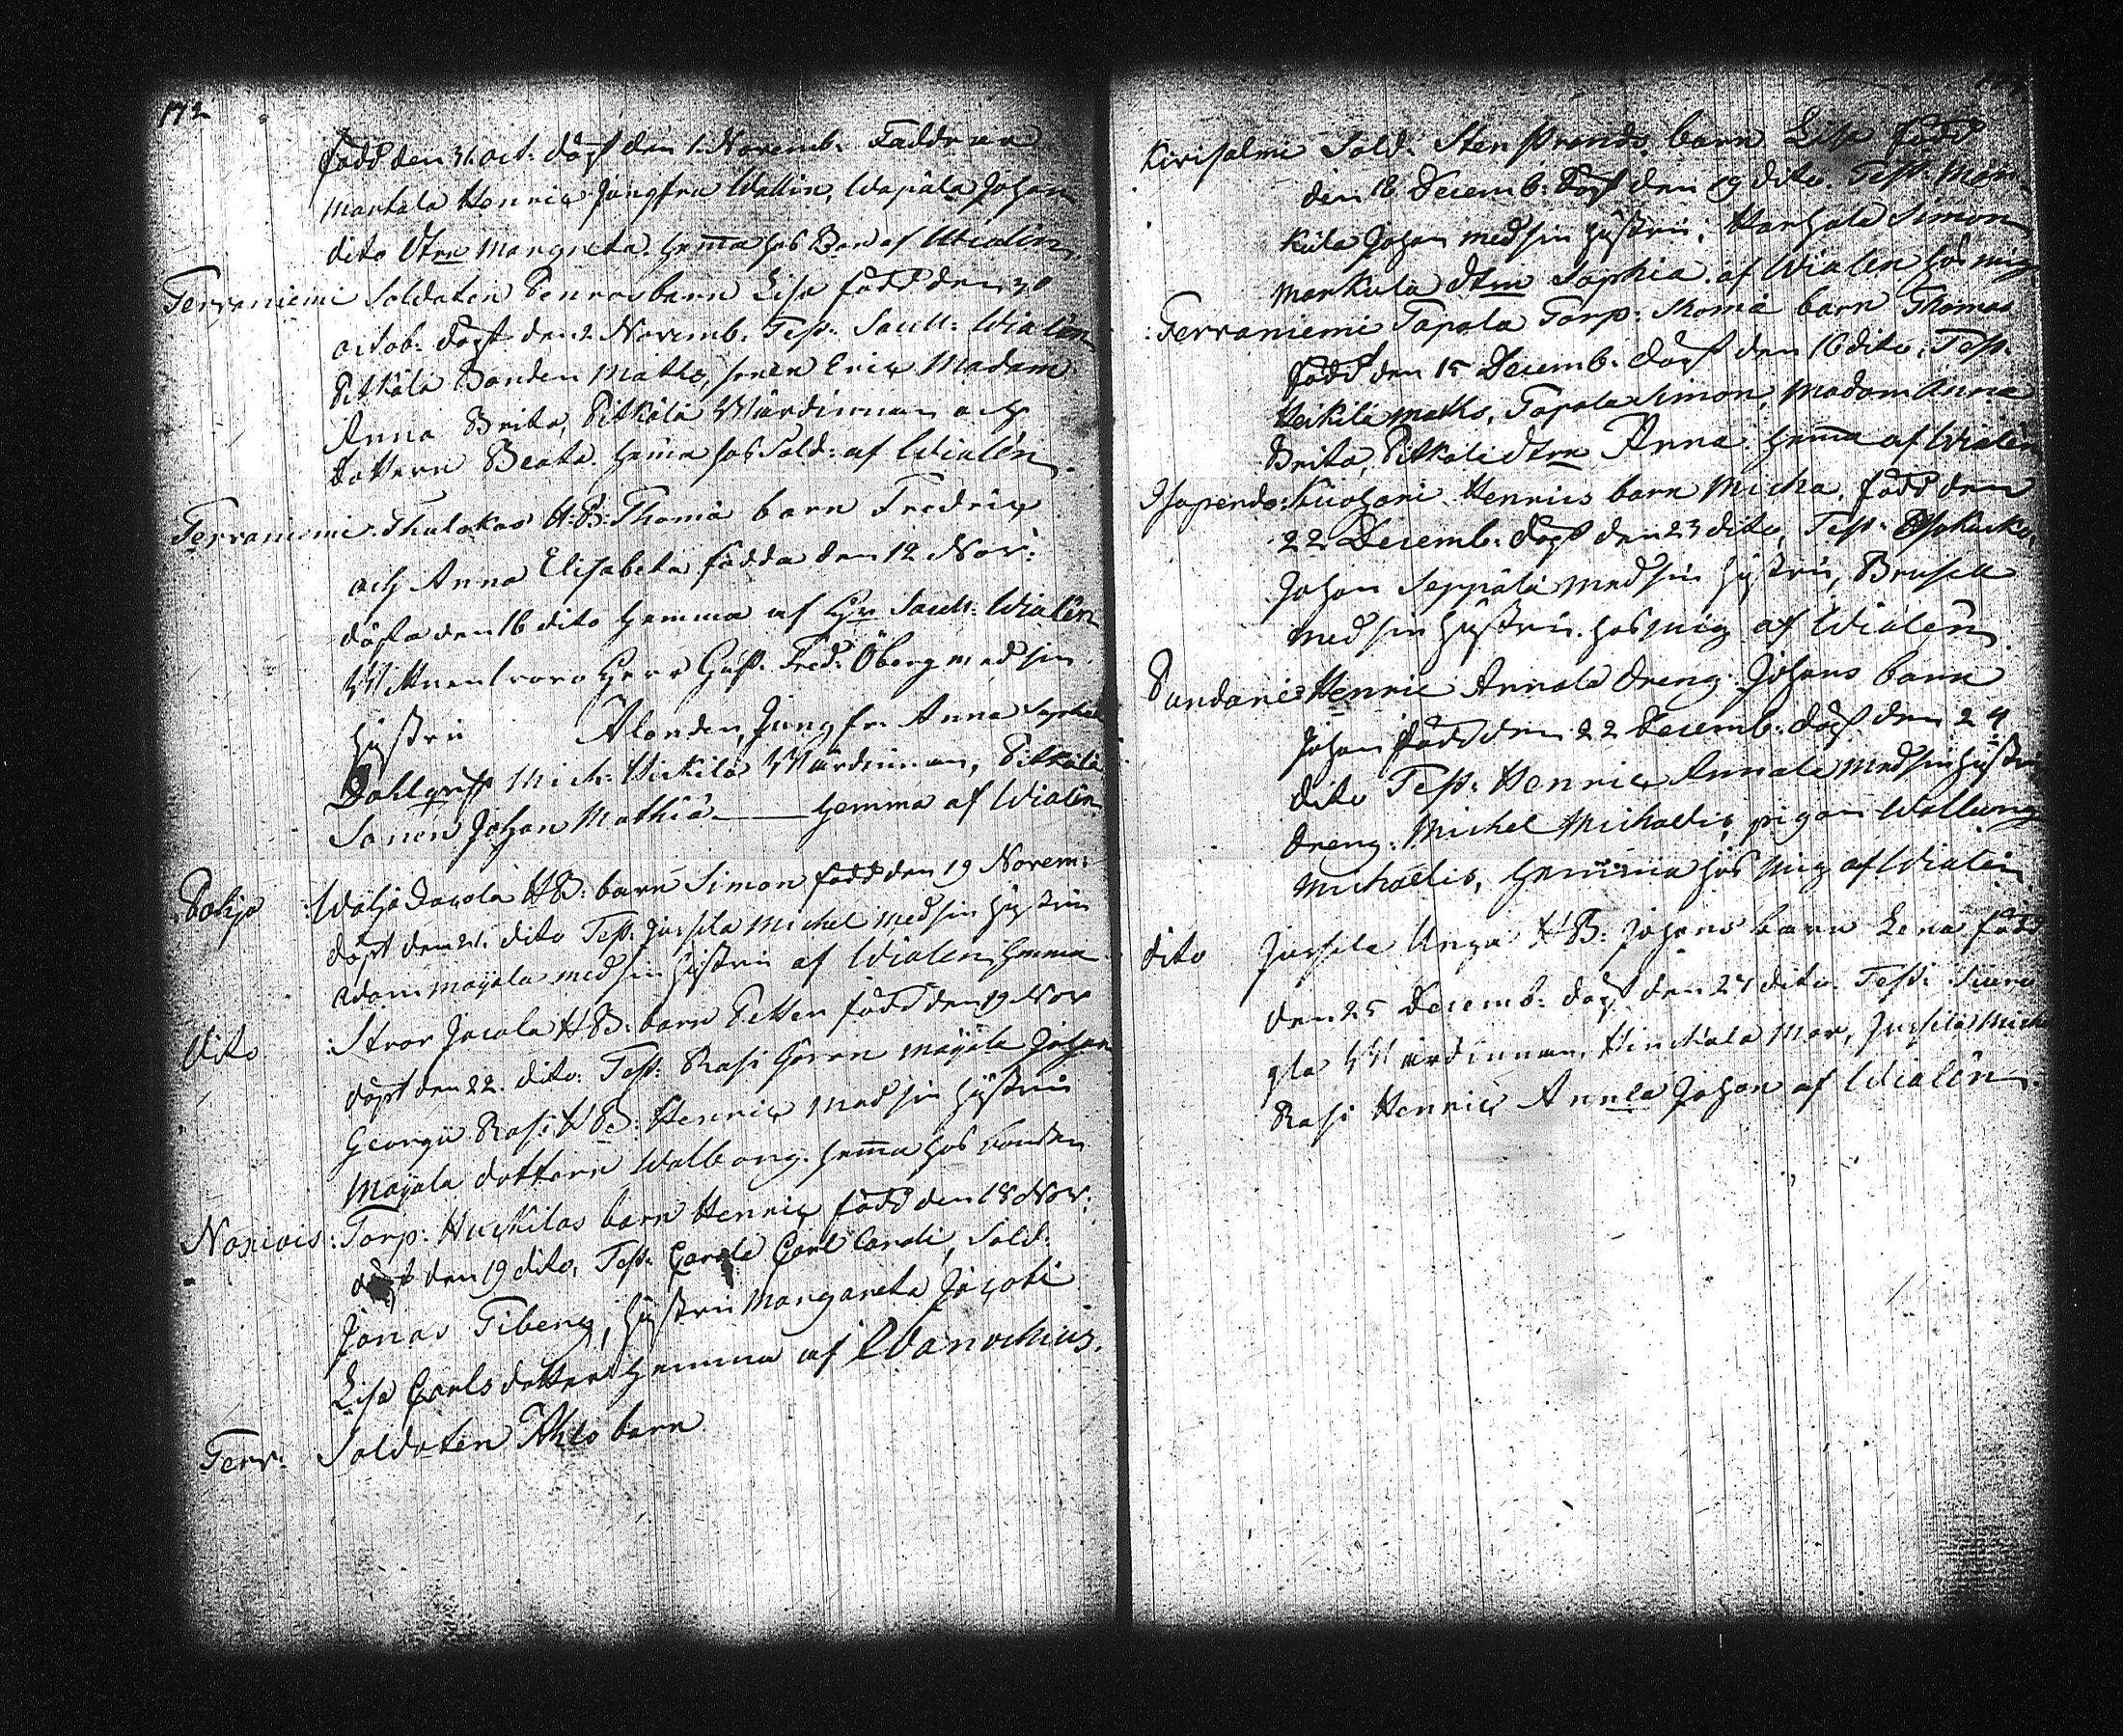 172
född den 31. Oct: döpt den 1. Novemb: Faddrar
Markala Henric Jungfru Wallin, Wapala Johan
dito dtrn Margreta. hem̄a hos Bon af Wialén
Terraniemi Soldaten barn Lisa född den 30
octob: döpt den 2. Novemb. Test: Sacell: Wialén
Pitkälä Bonden Maths, sonen Eric Madam
Anna Brita, Pitkälä Wärdinnan och
dottern Beata. hem̄a hos Sold: af Wialén
Terraniemi: Thulokas H:B: Thomä barn Fredric
och Anna Elisabeta födda den 12 Nov:
döpta den 16 dito hemma af Hr Sacell: Wialén
Wittnen woro Herr Gust: Fred: Öberg med sin
hustru Alanden, Jungfr. Anna Sophia
Dahlqvist Mich: Heikilä Wärdinnan, Pitkälä
Sonen Johan Mathiä — hemma af Wialén
Pohjo : Wähä Jacola HB: barn Simon född den 19 Novem:
döpt den 21. dito Test. Jussila Michel med sin hustru
Adam Mayala med sin hustru af Wialén hemma
dito : Stor Jacola HB: barn Petter född den 19 Nov
döpt den 22. dito. Test: Rasi Göran Mäyälä Johan
Georgii Rasi HB: Henric med sin hustru
Mäyälä dottern Walborg. hem̄a hos bonden
Noxiais: Torp: Huckilas barn Henric född den 18 Nov:
döpt den 19 dito, Test: Carl Caroli, Sold:
Jonas Tiberg, hustru Margareta Jacobi
Lisa Carls dotter hemma af Wanochius.
Terr: Soldaten Ahls barn
Kirisalmi Sold: Sten barn Lisa född
den 18 Decemb: döpt den 19 dito. Test: Mar-
kula Johan med sin hustru, Harhala Simon
Markula dtrn Sophia. af Wialén hos mig
Terraniemi Tapola Torp: Thomä barn Thomas
född den 15 Decemb: döpt den 16 dito, Test.
Heikilä Maths, Tapola Simon, Madam Anna
Brita, Pitkälä dtrn Anna hem̄a af Wialén
Kuohari Henrics barn Micha. född den
22 Decemb: döpt den 23 dito, Test:
Johan Seppälä med sin hustru, Brusell
med sin hustru. hos mig af Wialén
Henric Annala dreng Johans barn
Johan född den 22 Decemb: döpt den 24
dito Test: Henric Annala med sin hustru
dreng: Michel Michaelis, pigan Walborg
Michaelis, hemma hos mig af Wialén
dito Jussila Unga HB: Johans barn Lena född
den 25 Decemb: döpt den 27 dito. Test:
Wärdinnan, Hinckala Mar, Jussila Mich
Rasi Henric Annla Johan af Wialén